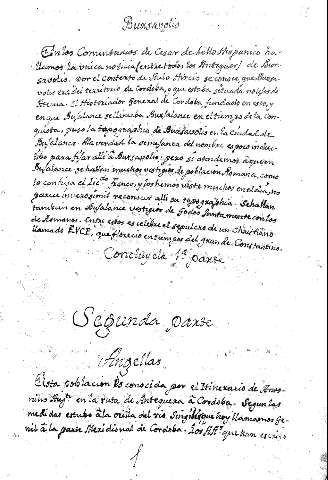 Bursavolis
En los Comentarios de Cesar de bello Hispanico ha-
llamos la unica noticia (entre todos los Antiguos) de Bur-
savolis. Por el contexto de Aulo Hircio se conoce, que Bursa-
volis era del territorio de Cordoba, o que estaba situada no lejos de
Ategua. El Historiador General de Cordoba fundado en esto, y
en que Bujalance se llamaba Burjalance en el tiempo de la con-
quista, puso la topographia de Bursavolis en la ciudad de
Bujalance. A la verdad la consonancia del nombre es poco
para fixar alli à Bursavolis: pero si atendemos à que en
Bujalance, se hallan muchos vestigios de poblacion Romana, como
lo confiesa el Licdo. Franco, y los hemos visto muchos en el dia, no
parece inverosimil reconocer alli su topographia. Se hallan
tambien en Bujalance vestigios de Godos juntamente con los
de Romanos. Entre estos es celebre el sepulcro de un Christiano
llamado que florecio en tiempos del gran de Constantino.
Concluyela 1ª parte
Segunda parte
Angellas
Esta poblacion es conocida por el Itinerario de Anto-
nino Augº en la ruta de Antequera à Cordoba. Segun las
medidas estubo à la orilla del rio Singilis que hoy llamamos Ge-
nil à la parte Meridional de Cordoba. Los AAs. que han escrito